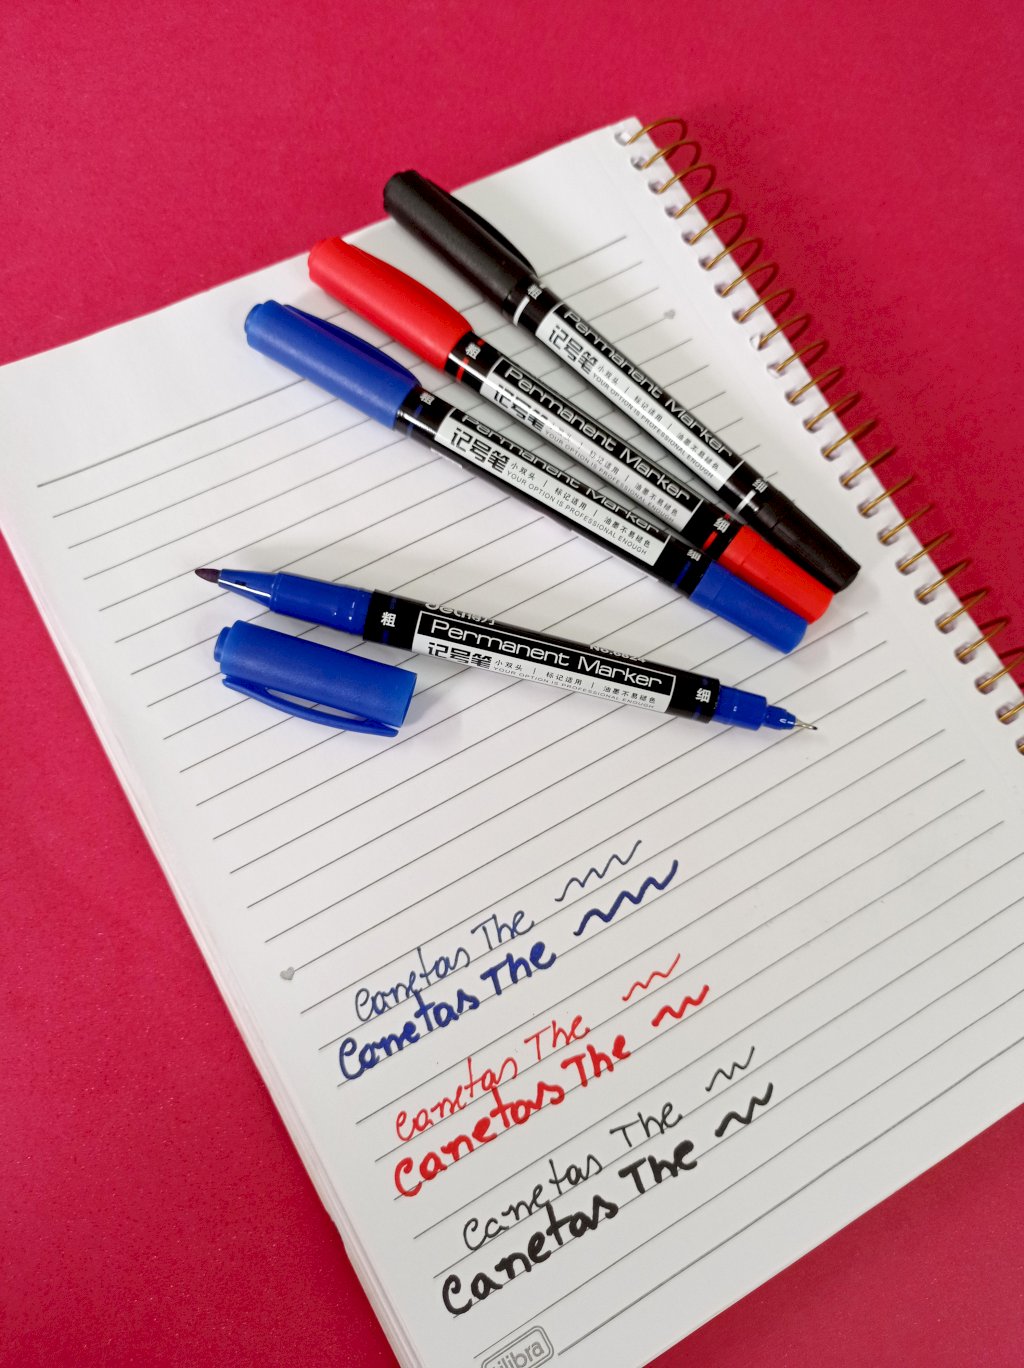 粗
Permanent Marker
记号笔 小双头 | 标记适用 | 油墨不易褪色
YOUR OPTION IS PROFESSIONAL ENOUGH
细
粗
Permanent Marker
记号笔 标记适用 | 油墨不易褪色
YOUR OPTION IS PROFESSIONAL ENOUGH
细
粗
Permanent Marker
记号笔 小双头 | 标记适用 | 油墨不易褪色
YOUR OPTION IS PROFESSIONAL ENOUGH
细
粗
Permanent Marker
记号笔 小双头 | 标记适用 | 油墨不易褪色
YOUR OPTION IS PROFESSIONAL ENOUGH
细
canetas The
canetas The
canetas The
canetas The
canetas The
canetas The